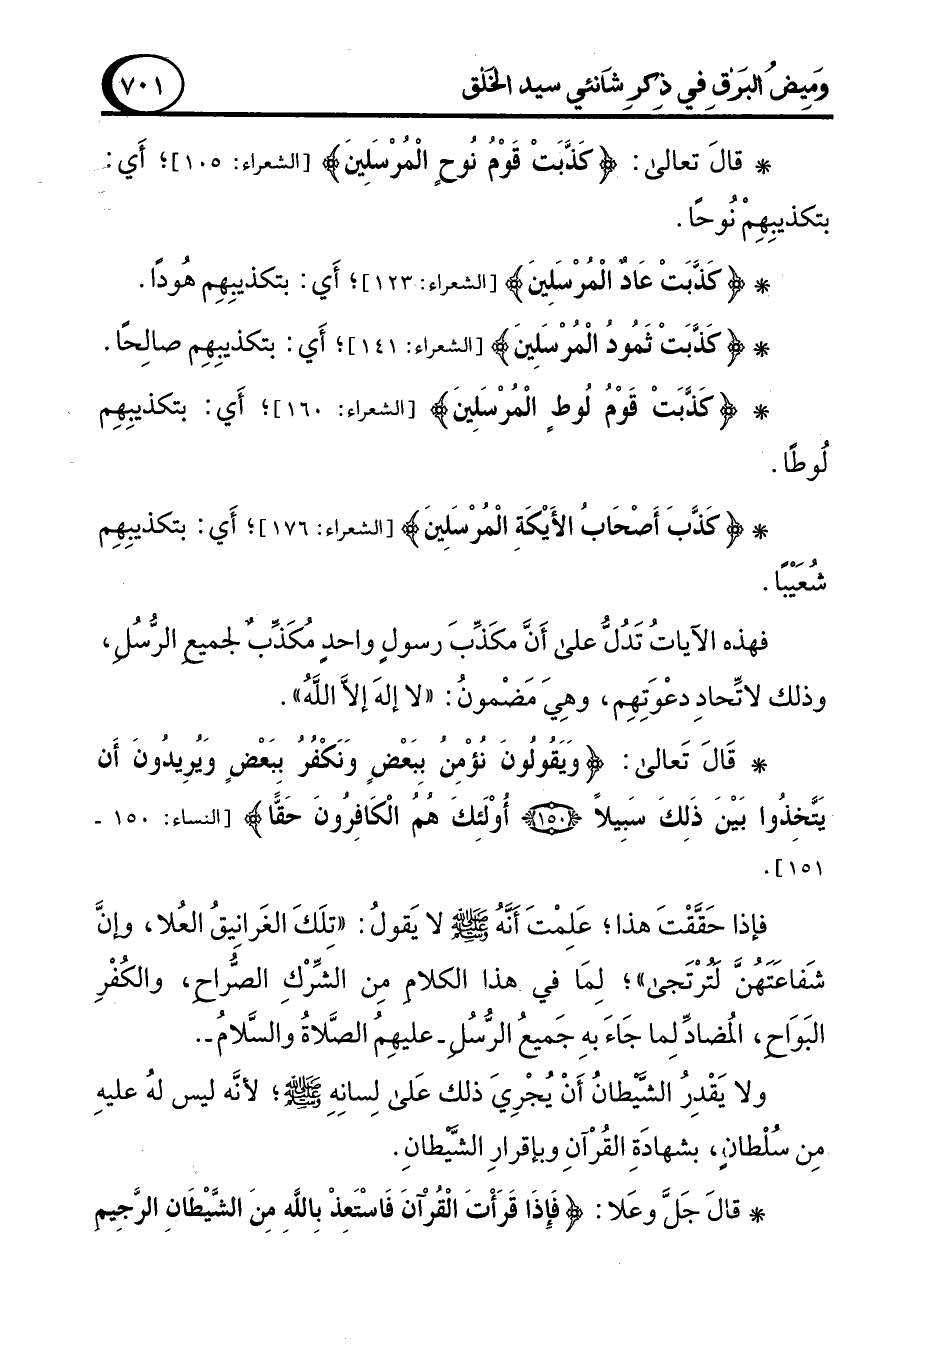 وَمِيضُ البَرْقِ في ذِكرِ شَانئي سيد الخَلْق
٧٠١
* قالَ تعالىٰ: ﴿كَذَّبَتْ قَوْمُ نُوحٍ الْمُرْسَلِينَ﴾ [الشعراء: ١٠٥]؛ أَي:
بتكذيبِهِمْ نُوحًا.
* ﴿كَذَّبَتْ عَادٌ الْمُرْسَلِينَ﴾ [الشعراء: ١٢٣]؛ أَي: بتكذيبِهِم هُودًا.
* ﴿كَذَّبَتْ ثَمُودُ الْمُرْسَلِينَ﴾ [الشعراء: ١٤١]؛ أَي: بتكذيبِهِم صالِحًا.
* ﴿كَذَّبَتْ قَوْمُ لُوطٍ الْمُرْسَلِينَ﴾ [الشعراء: ١٦٠]؛ أَي: بتكذيبِهِم
لُوطًا.
* ﴿كَذَّبَ أَصْحَابُ الأَيْكَةِ الْمُرْسَلِينَ﴾ [الشعراء: ١٧٦]؛ أَي: بتكذيبِهِم
شُعَيْبًا.
فهذه الآياتُ تَدُلُّ علىٰ أَنَّ مكَذِّبَ رسولٍ واحدٍ مُكَذِّبٌ لجميعِ الرُّسُلِ،
وذلك لاتِّحادِ دعْوَتِهِم، وهيَ مَضْمونُ: «لا إلهَ إلاَّ اللَّهُ».
* قَالَ تَعالىٰ: ﴿وَيَقُولُونَ نُؤْمِنُ بِبَعْضٍ وَنَكْفُرُ بِبَعْضٍ وَيُرِيدُونَ أَن
يَتَّخِذُوا بَيْنَ ذَلِكَ سَبِيلاً ﴿١٥٠﴾ أُوْلَئِكَ هُمُ الْكَافِرُونَ حَقًّا﴾ [النساء: ١٥٠ -
١٥١].
فإذا حَقَّقْتَ هذا؛ عَلِمْتَ أَنَّهُ ﷺ لا يَقولُ: «تِلكَ الغَرانيقُ العُلا، وإنَّ
شَفاعَتَهُنَّ لَتُرْتَجىٰ»؛ لِمَا في هذا الكلامِ مِن الشِّرْكِ الصُّراحِ، والكُفْرِ
البَوَاحِ، المُضادِّ لِما جَاءَ بهِ جَميعُ الرُّسُلِ ـ عليهِمُ الصَّلاةُ والسَّلامُ ـ.
ولا يَقْدِرُ الشَّيْطانُ أَنْ يُجْرِيَ ذلك عَلىٰ لِسانِهِ ﷺ؛ لأنَّه ليس لهُ عليهِ
مِن سُلْطانٍ، بشهادَةِ القُرْآنِ وبإقرارِ الشَّيْطانِ.
* قالَ جَلَّ وعَلا: ﴿فَإِذَا قَرَأْتَ الْقُرْآنَ فَاسْتَعِذْ بِاللَّهِ مِنَ الشَّيْطَانِ الرَّجِيمِ